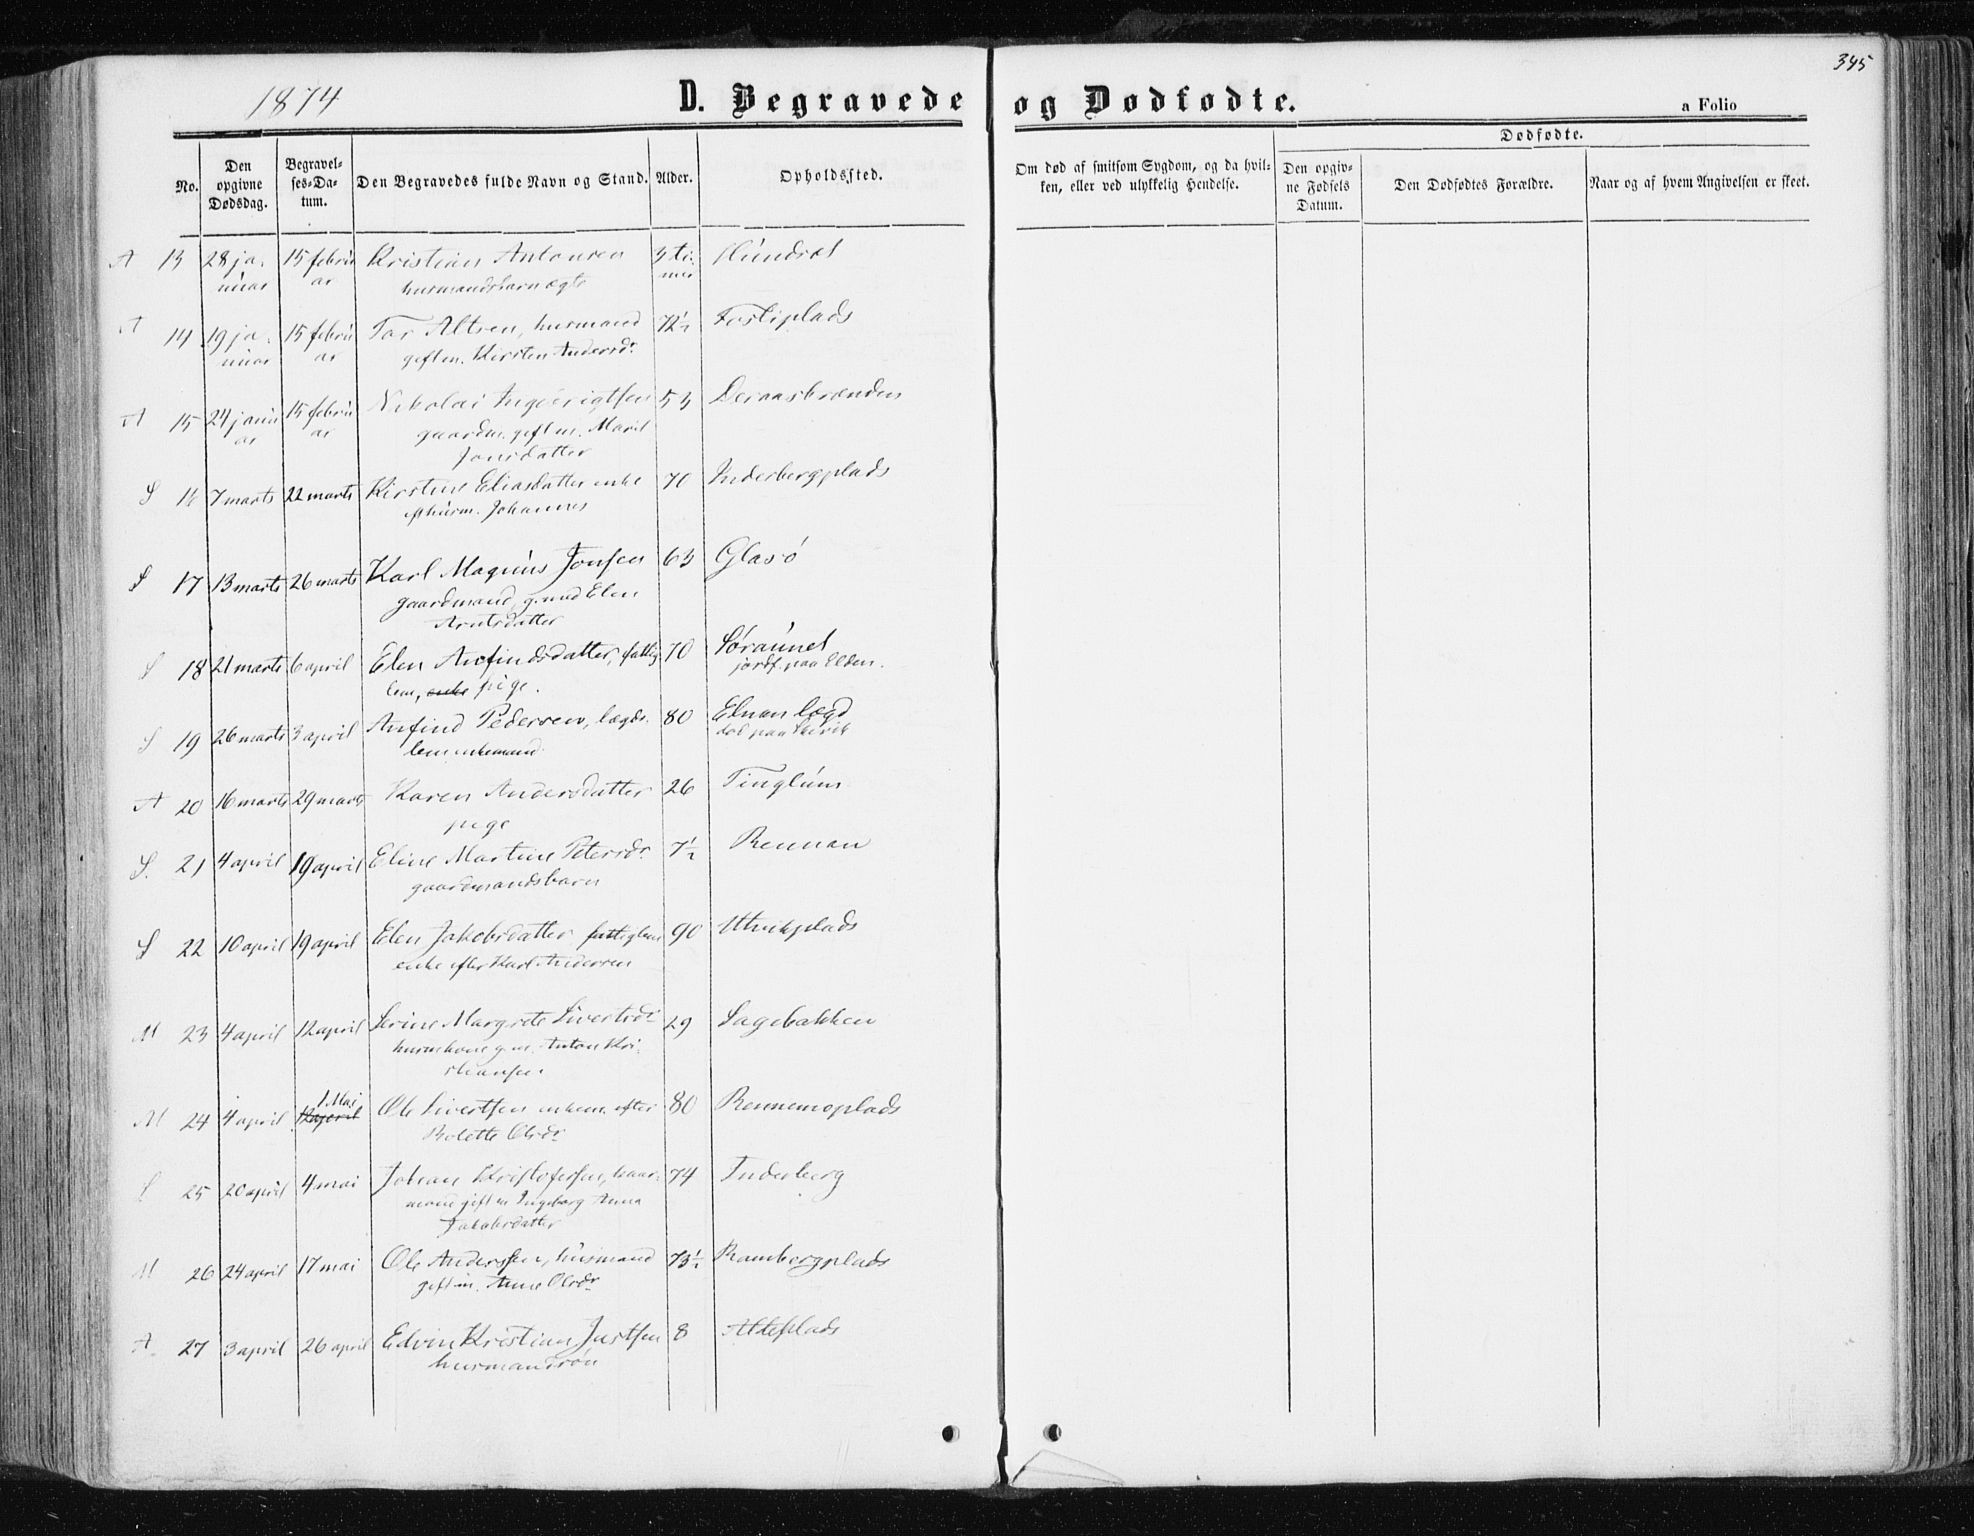 345
1874
D. Begravede og Dødfødte.
a Folio
No.
Den opgivne Dødsdag.
Begravelses-Datum.
Den Begravedes fulde Navn og Stand.
Alder.
Opholdssted.
Om død af smitsom Sygdom, og da hvilken, eller ved ulykkelig Hendelse.
Dødfødte.
Den opgivne Fødsels Datum.
Den Dødfødtes Forældre.
Naar og af hvem Angivelsen er skeet.
A 13 28 januar 15 februar Kristian Antonsen 3 timer
husmandsbarn ægte
A 14 19 januar 15 februar Tor Altsen, husmand 72½ Fostiplads
gift m. Kirsten Andersdr
A 15 24 januar 15 februar Nikolai Ingebrigtsen 53
gaardm. gift m. Marit
Jonsdatter
S 16 7 marts 22 marts Kirstine Eliasdatter enke 70 Inderbergplads
eft husm. Johannes
S 17 13 marts 26 marts Karl Magnus Jonsen 63 Glasø
gaardmand, g. med Elen
Arntsdatter
S 18 21 marts 6 april Elen Anfindsdatter, fattig 70 Søraunet
lem, enke pige. jordf. paa Elden.
S 19 26 marts 3 april Anfind Pedersen, lægds 80 Elnan lægd
lem, enkemand død paa
A 20 16 marts 29 marts Karen Andersdatter 26 Tinglum
pige
S. 21 4 april 19 april Eline Martine Petersdr 7½ Rennan
gaardmandsbarn
S 22 10 april 19 april Elen Jakobsdatter fattiglem 90 Utvikplads
enke efter Karl Andersen
M 23 4 april 12 april Serine Margrete Sivertsdr 29 Sagebakken
husmkone g. m. Anton Kri-
stiansen
M 24 4 april 12 april 1 Mai Ole Sivertsen enkem. efter 80 Rennemsplads
Bolette Olsdr
S 25 20 april 4 mai Johan Kristofersen, kaar- 74 Inderberg
mand gift m Ingeborg Anna
Jakobsdatter
M 26 24 april 17 mai Ole Anderssen, husmand 73½ Rambergplads
gift m. Anne Olsdr
A. 27 3 april 26 april Edvin Kristian Justsen 8 Aldeplads
husmandssøn